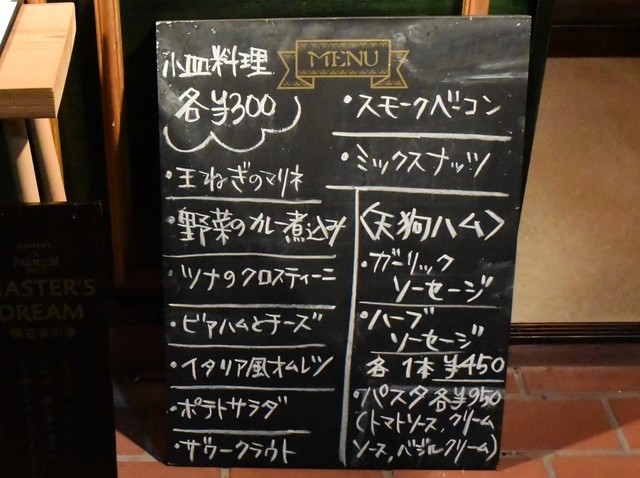 MENU
小皿料理
各¥300
・玉ねぎのマリネ
・野菜のカレー煮込み
・ツナのクロスティーニ
・ビアハムとチーズ
・イタリア風オムレツ
・ポテトサラダ
・ザワークラウト
・スモークベーコン
・ミックスナッツ
〈天狗ハム〉
・ガーリック
ソーセージ
・ハーブ
ソーセージ
各1本 ¥450
・パスタ各¥950
(トマトソース,クリーム
ソース,バジルクリーム)
PREMIUM
MASTER'S
DREAM